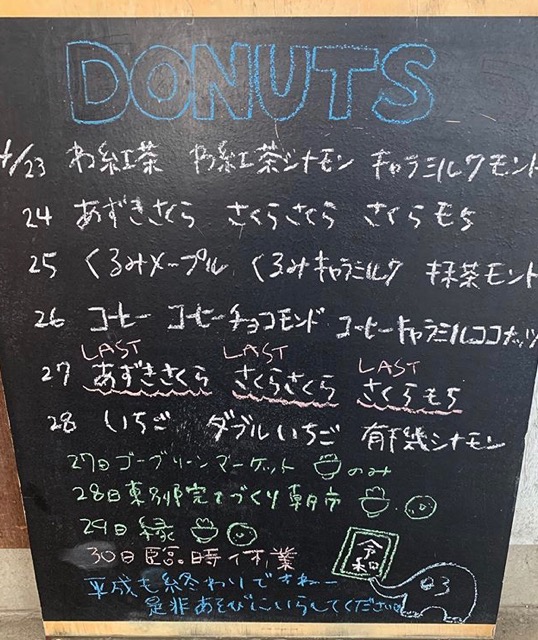 DONUTS
4/23 わ紅茶 わ紅茶シナモン キャラミルクモンド
24 あずきさくら さくらさくら さくらもち
25 くるみメープル くるみキャラミルク 抹茶モンド
26 コーヒー コーヒーチョコモンド コーヒーキャラミルココナッツ
LAST LAST LAST
27 あずきさくら さくらさくら さくらもち
28 いちご ダブルいちご 有機シナモン
27日ゴーグリーンマーケット のみ
28日東別院てづくり朝市
29日縁
30日臨時休業
令和
平成も終わりですねー
是非あそびにいらしてください